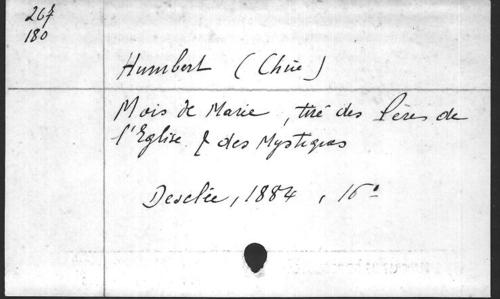 267
180
Humbert (Chne)
Mois de Marie, tiré des Pères de
l'Eglise & des Mystiques
Desclée, 1884, 16°